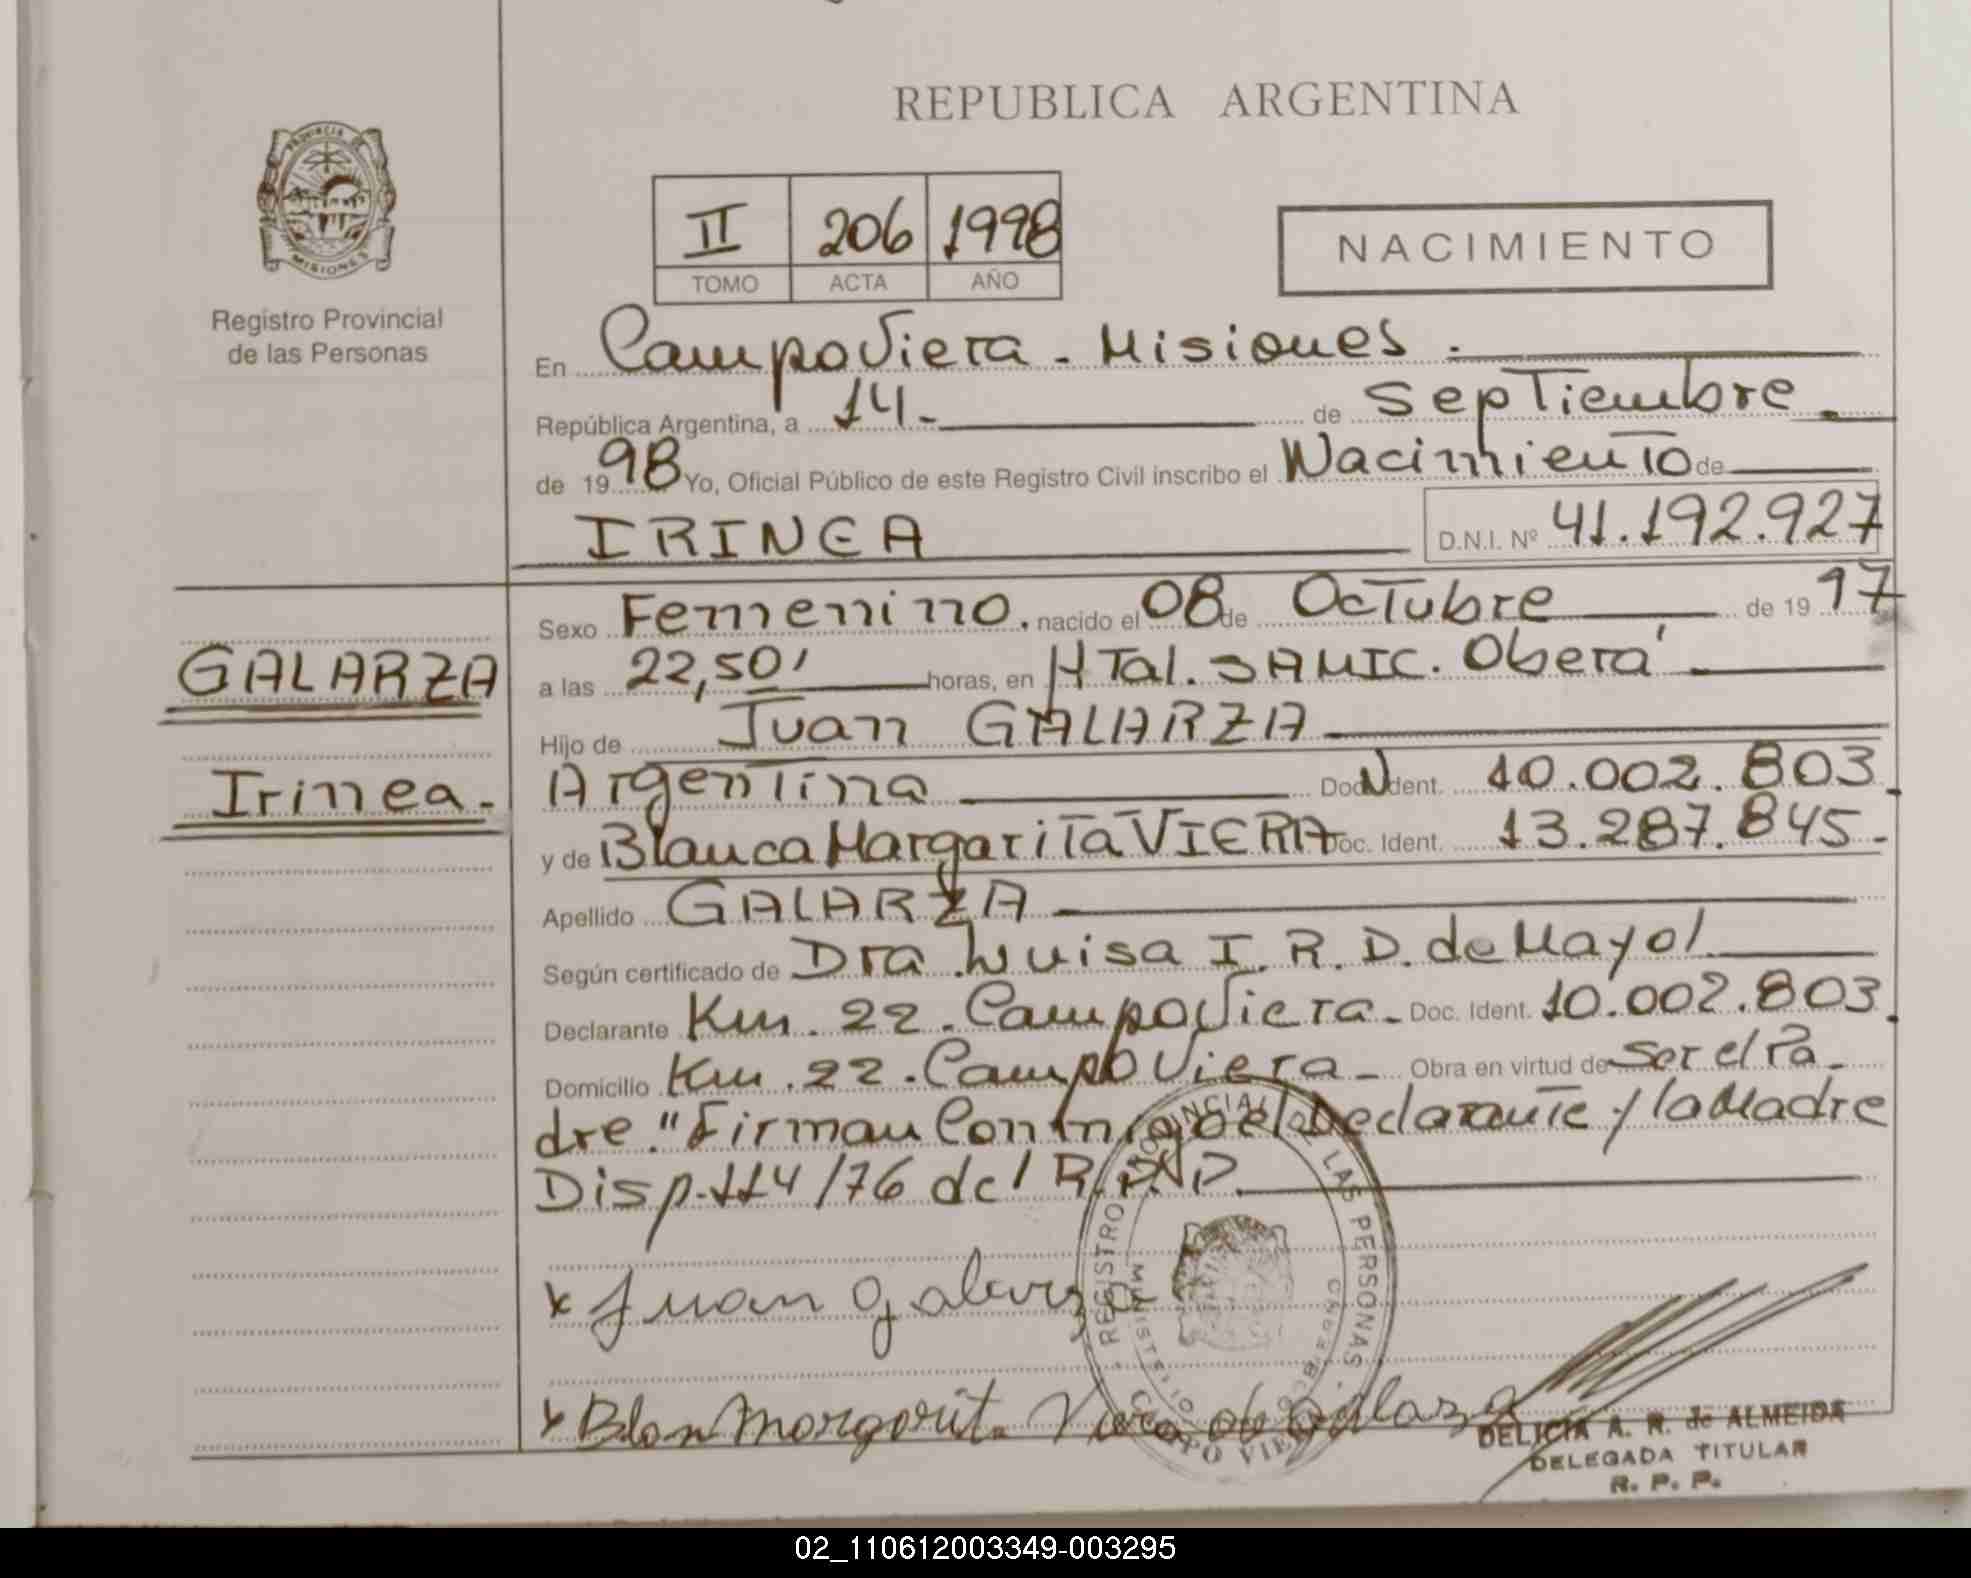 REPUBLICA ARGENTINA
PROVINCIA DE
MISIONES
Registro Provincial
de las Personas
II 206 1998
TOMO ACTA AÑO
NACIMIENTO
En Campo Viera - Misiones.
República Argentina, a 14- de Septiembre.
de 1998 Yo, Oficial Público de este Registro Civil inscribo el Nacimiento de
IRINEA D.N.I. Nº 41.192.927
GALARZA
Irinea.-
Sexo Femenino. nacido el 08 de Octubre de 19 97
a las 22,50' horas, en HTal. SAMIC. Oberá
Hijo de Juan GALARZA
Argentina Doc. Ident. 10.002.803.
y de Blanca Margarita VIERA Doc. Ident. 13.287.845.-
Apellido GALARZA
Según certificado de Dra Luisa I. R. D. de Mayol
Declarante Km. 22. Campo Viera- Doc. Ident. 10.002.803.
Domicilio Km. 22. Campo Viera- Obra en virtud de Ser el Pa-
dre. "Firman Conmigo el Declarante y la Madre
Disp. 114/76 del R.P.P.
x Juan galarza
x Blan Margarit Viera de Galarza
REGISTRO PROVINCIAL DE LAS PERSONAS
MINISTERIO GOBIERNO
CAMPO VIERA
DELICIA A. R. de ALMEIDA
DELEGADA TITULAR
R. P. P.
02_110612003349-003295